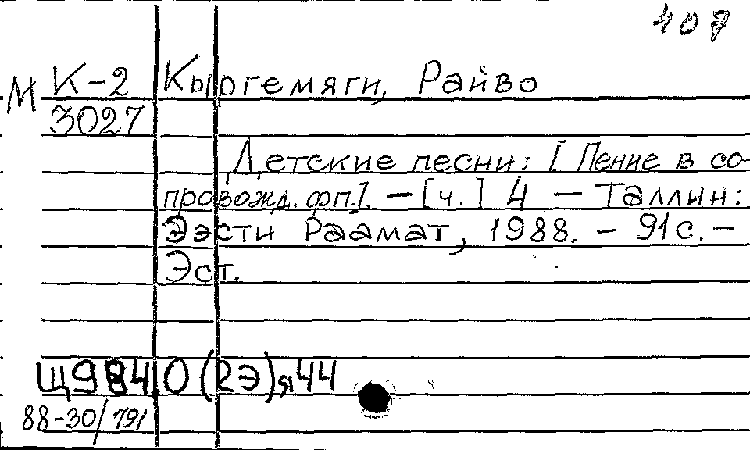 408
М К-2 Кыргемяги, Райво
3027
Детские песни: [Пение в со-
провожд. фп.]. – [ч.] 4 – Таллын:
Ээсти Раамат, 1988. – 91 с. –
Эст.
Щ984.0(2Э),я44
88-30/191